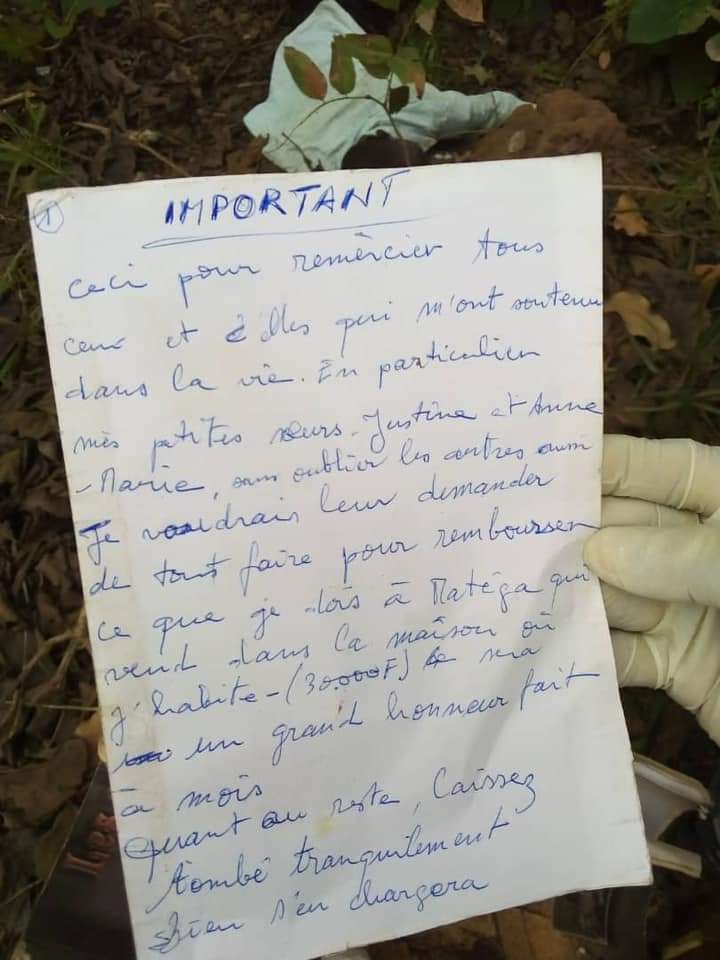 1
IMPORTANT
Ceci pour remèrcier tous
ceux et celles qui m'ont soutenu
dans la vie. En particulier
mes petites sœurs. Justine et Anne
-Marie, sans oublier les autres aussi
Je voudrais leur demander
de tout faire pour rembourser
ce que je dois à Matéga qui
vend dans la maison où
j'habite - (30.000F) sera
un grand honneur fait
à mois
Quant au reste, laissez
tombé tranquilement
Dieu s'en chargera